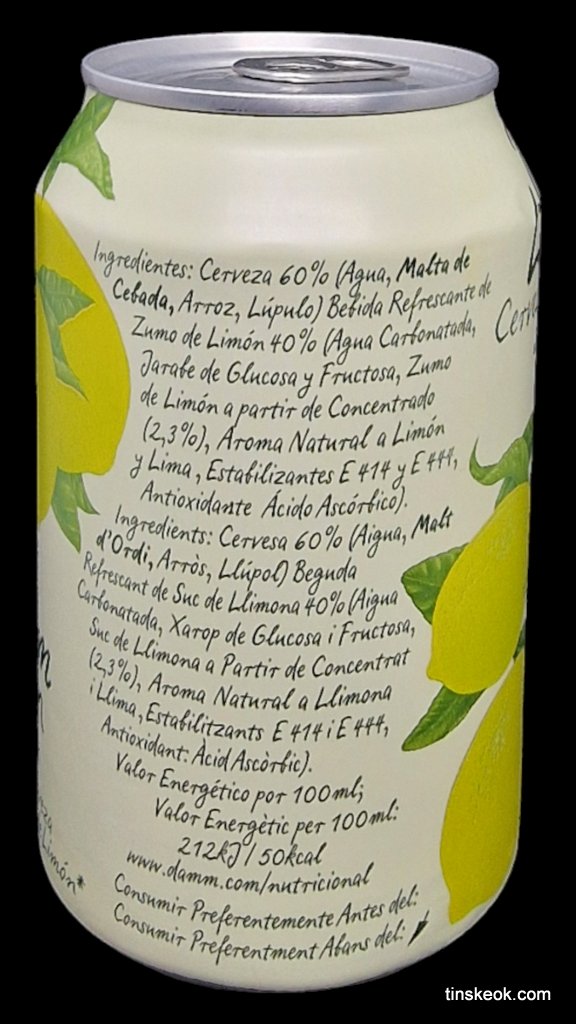 Ingredientes: Cerveza 60% (Agua, Malta de
Cebada, Arroz, Lúpulo) Bebida Refrescante de
Zumo de Limón 40% (Agua Carbonatada,
Jarabe de Glucosa y Fructosa, Zumo
de Limón a partir de Concentrado
(2,3%), Aroma Natural a Limón
y Lima, Estabilizantes E 414 y E 444,
Antioxidante Ácido Ascórbico).
Ingredients: Cervesa 60% (Aigua, Malt
d'Ordi, Arròs, Llúpol) Beguda
Refrescant de Suc de Llimona 40% (Aigua
Carbonatada, Xarop de Glucosa i Fructosa,
Suc de Llimona a Partir de Concentrat
(2,3%), Aroma Natural a Llimona
i Llima, Estabilitzants E 414 i E 444,
Antioxidant: Àcid Ascòrbic).
Valor Energético por 100ml;
Valor Energètic per 100ml:
212kJ / 50kcal
www.damm.com/nutricional
Consumir Preferentemente Antes del:
Consumir Preferentment Abans del:
Limón*
tinskeok.com